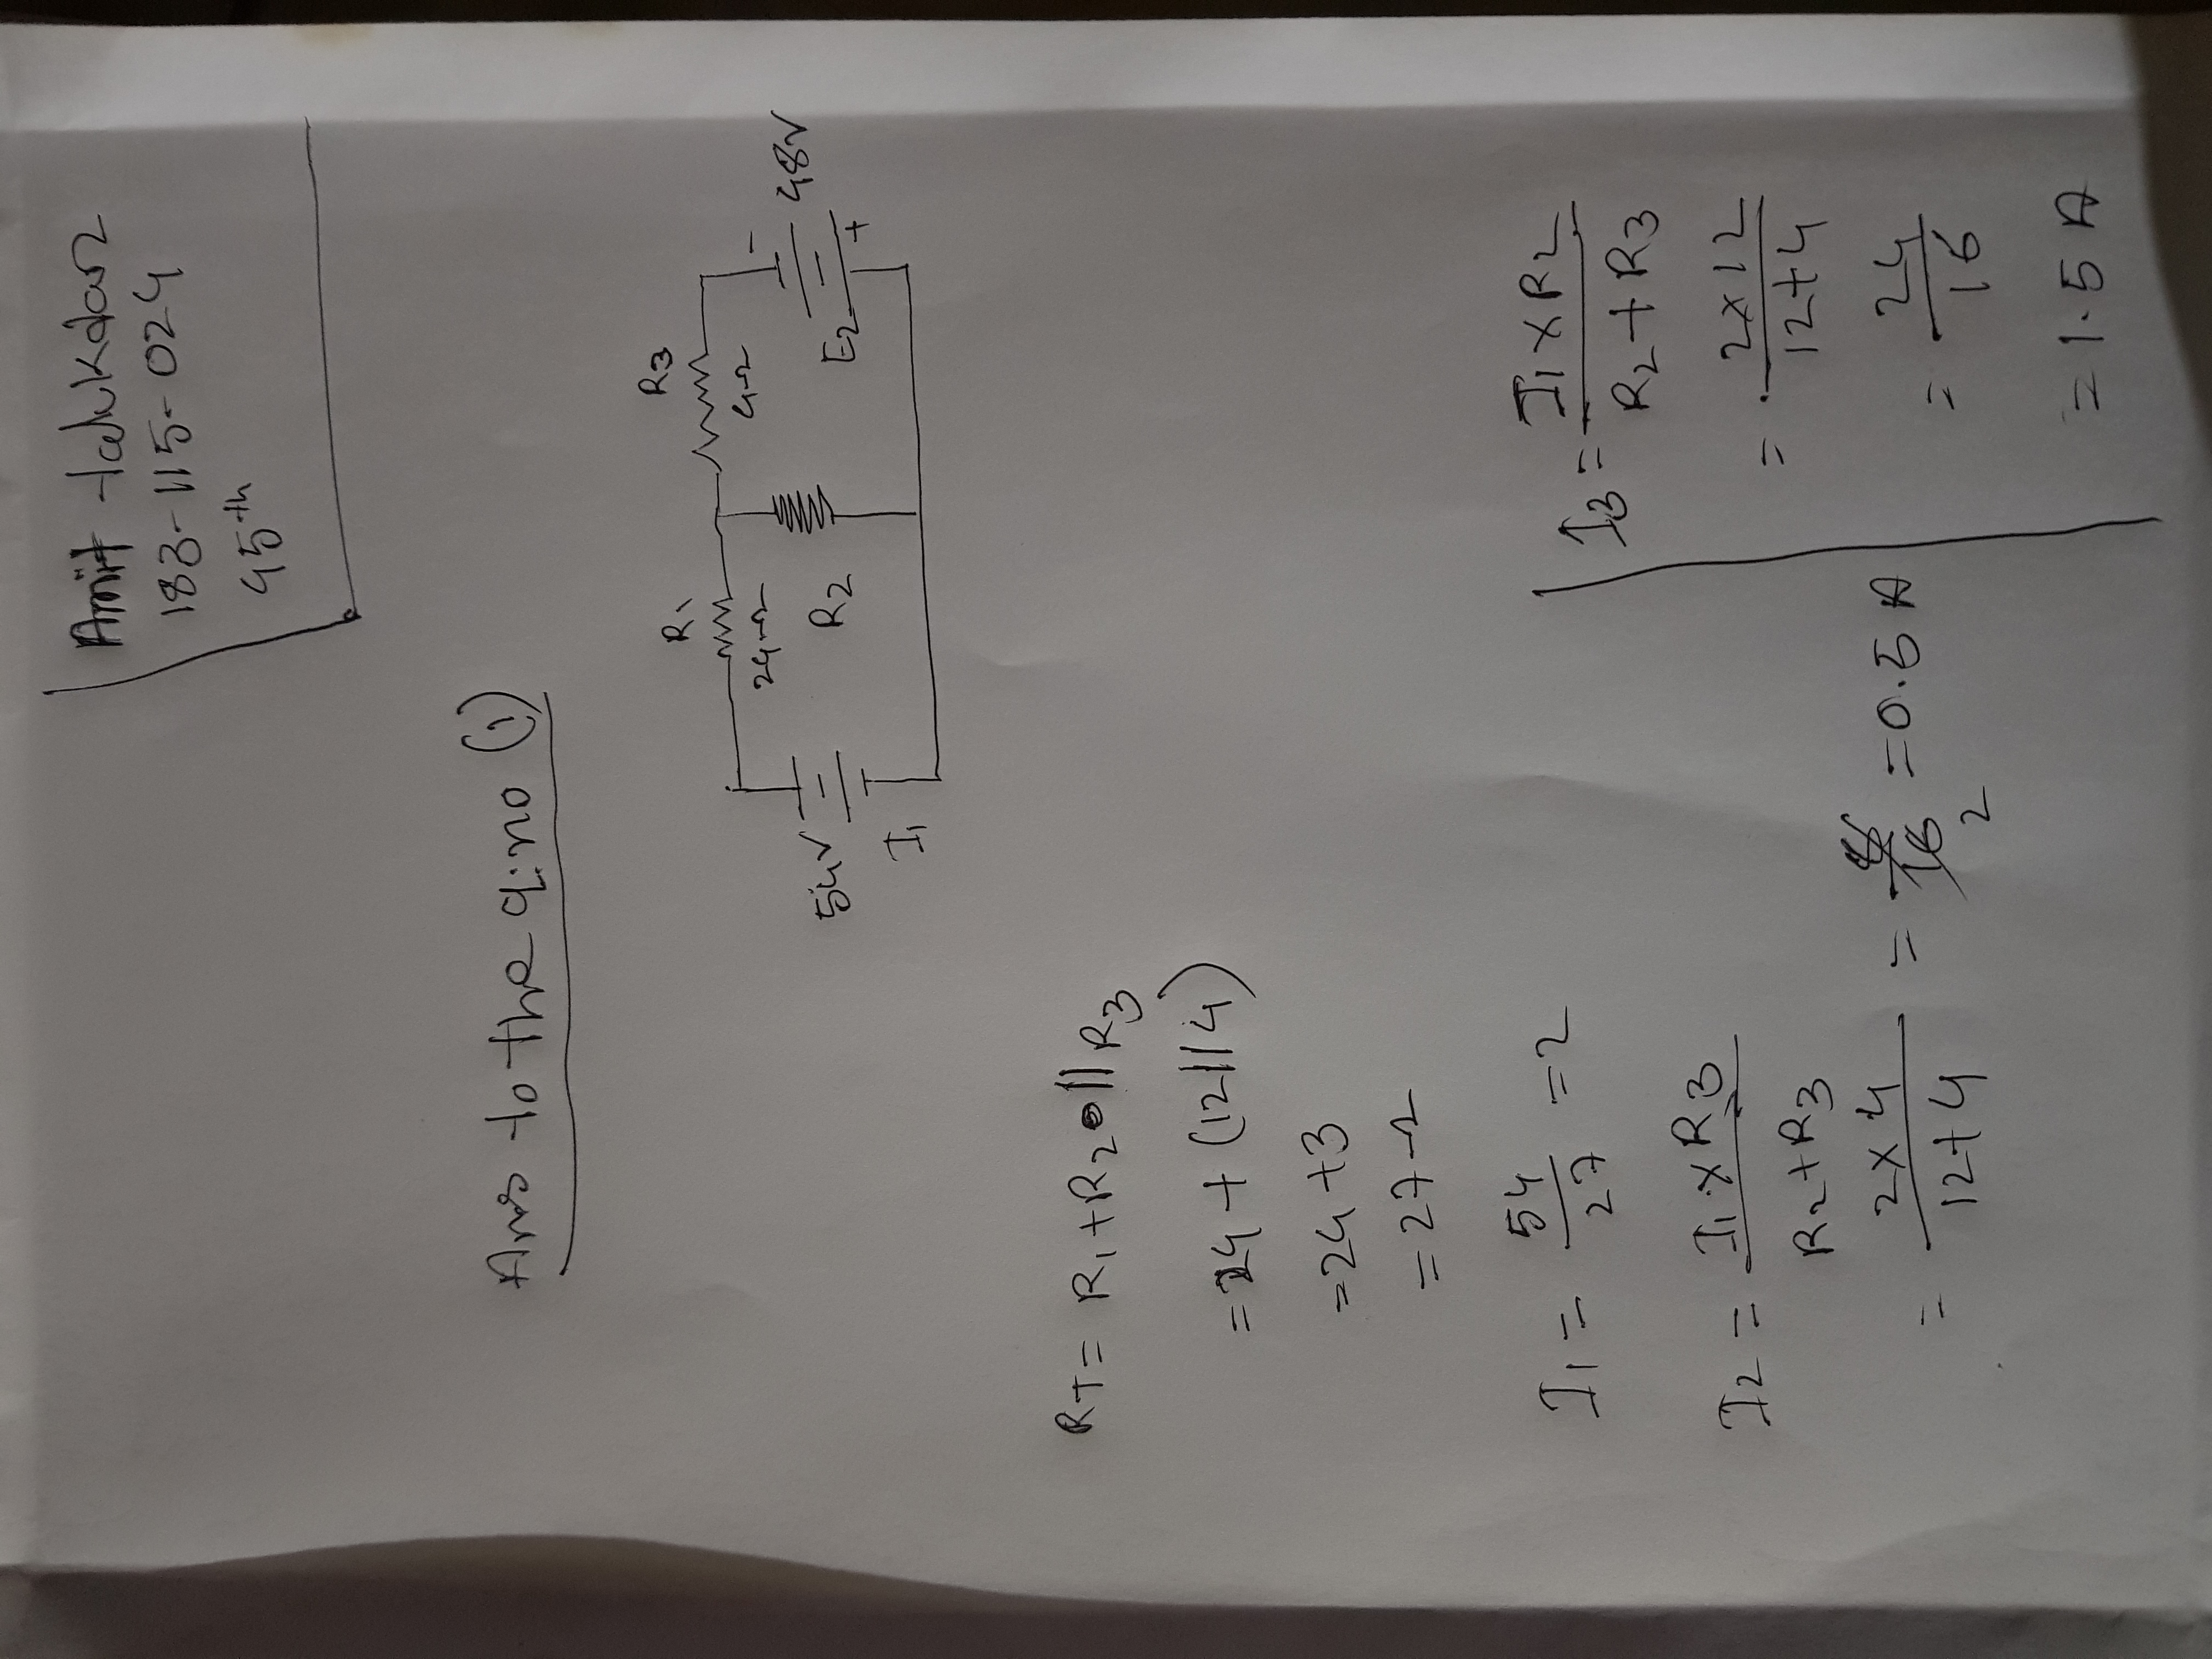 Amit talukdar
183-115-024
45th
Ans to the q.no (1)
R1
R3
24Ω
4Ω
-
54V
R2
E2
48V
+
I1
RT = R1+R2 || R3
= 24 + (12||4)
= 24 + 3
= 27Ω
I1 = 54/27 = 2
I2 = I1 × R3 / R2+R3
= 2×4 / 12+4 = 8/16 2 = 0.5 A
I3 = I1 × R2 / R2+R3
= 2×12 / 12+4
= 24/16
= 1.5 A